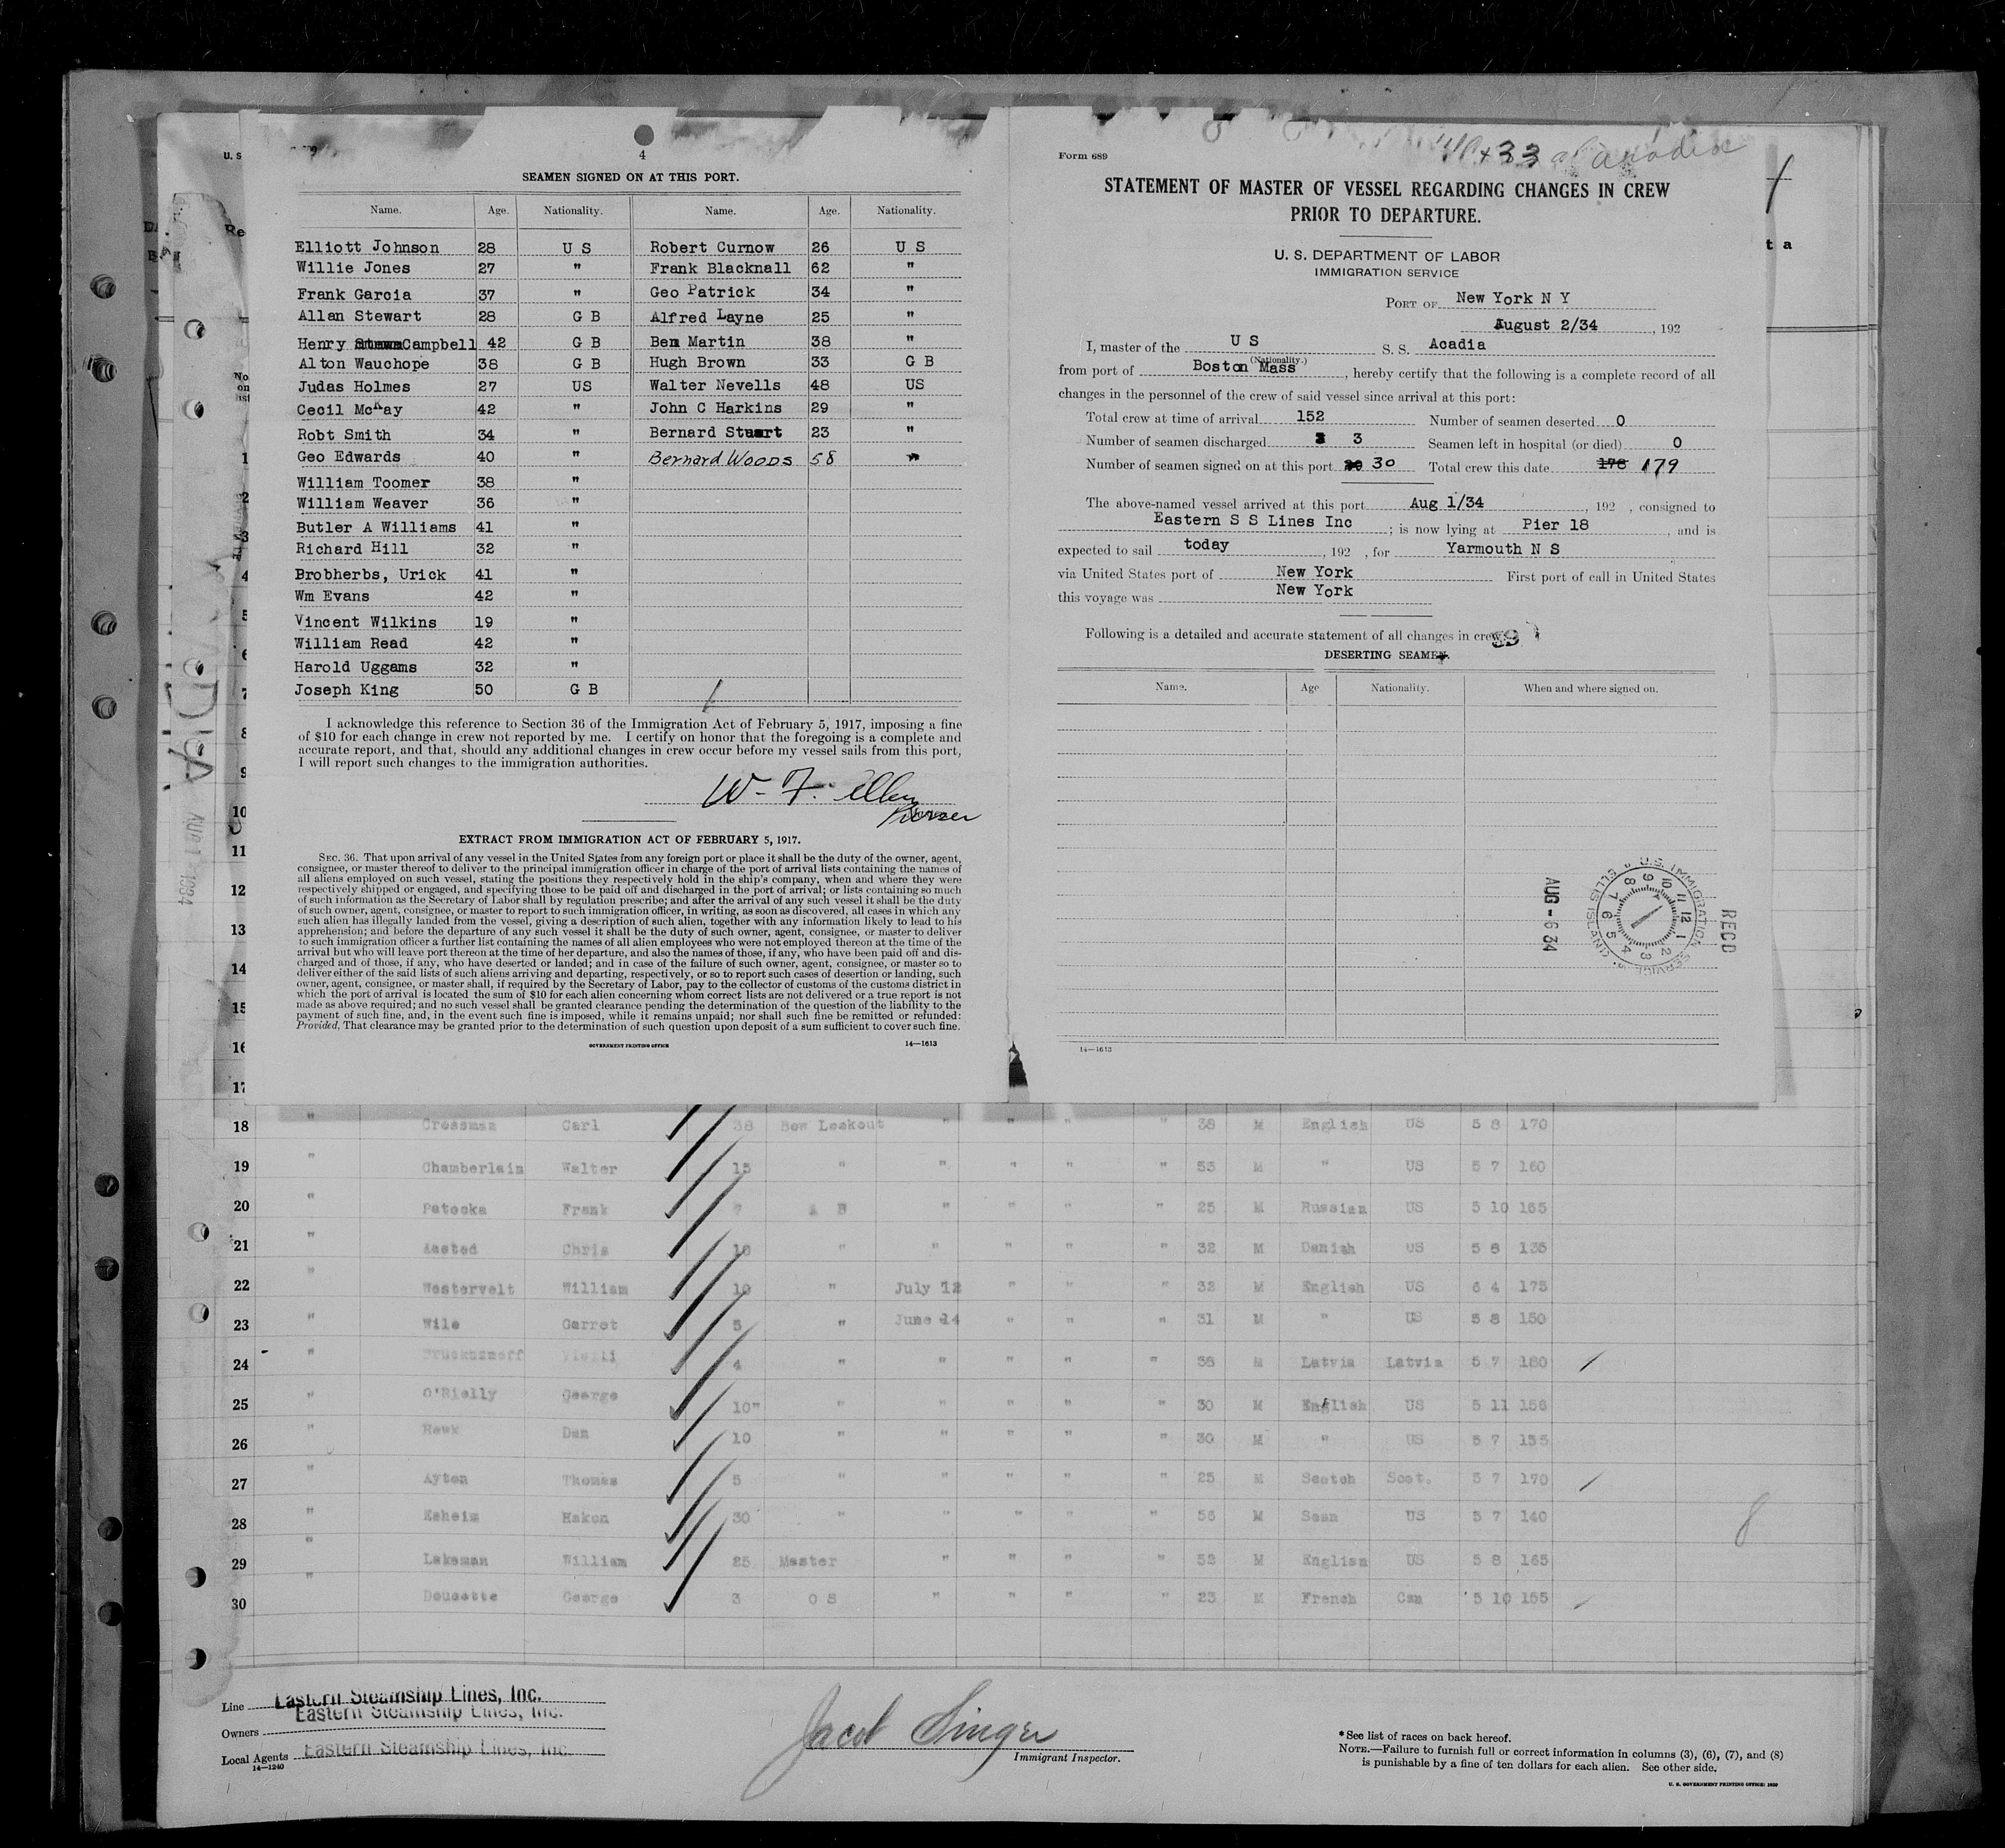 4
SEAMEN SIGNED ON AT THIS PORT.
Name. Age. Nationality. Name. Age. Nationality.
Elliott Johnson 28 U S Robert Curnow 26 U S
Willie Jones 27 " Frank Blacknall 62 "
Frank Garcia 37 " Geo Patrick 34 "
Allan Stewart 28 G B Alfred Layne 25 "
Henry Campbell 42 G B Ben Martin 38 "
Alton Wauchope 38 G B Hugh Brown 33 G B
Judas Holmes 27 US Walter Nevells 48 US
Cecil McKay 42 " John C Harkins 29 "
Robt Smith 34 " Bernard Stuart 23 "
Geo Edwards 40 " Bernard Woods 58 "
William Toomer 38 "
William Weaver 36 "
Butler A Williams 41 "
Richard Hill 32 "
Brobherbs, Urick 41 "
Wm Evans 42 "
Vincent Wilkins 19 "
William Read 42 "
Harold Uggams 32 "
Joseph King 50 G B
I acknowledge this reference to Section 36 of the Immigration Act of February 5, 1917, imposing a fine
of $10 for each change in crew not reported by me. I certify on honor that the foregoing is a complete and
accurate report, and that, should any additional changes in crew occur before my vessel sails from this port,
I will report such changes to the immigration authorities.
W. F. Allen
Purser
EXTRACT FROM IMMIGRATION ACT OF FEBRUARY 5, 1917.
SEC. 36. That upon arrival of any vessel in the United States from any foreign port or place it shall be the duty of the owner, agent,
consignee, or master thereof to deliver to the principal immigration officer in charge of the port of arrival lists containing the names of
all aliens employed on such vessel, stating the positions they respectively hold in the ship's company, when and where they were
respectively shipped or engaged, and specifying those to be paid off and discharged in the port of arrival; or lists containing so much
of such information as the Secretary of Labor shall by regulation prescribe; and after the arrival of any such vessel it shall be the duty
of such owner, agent, consignee, or master to report to such immigration officer, in writing, as soon as discovered, all cases in which any
such alien has illegally landed from the vessel, giving a description of such alien, together with any information likely to lead to his
apprehension; and before the departure of any such vessel it shall be the duty of such owner, agent, consignee, or master to deliver
to such immigration officer a further list containing the names of all alien employees who were not employed thereon at the time of the
arrival but who will leave port thereon at the time of her departure, and also the names of those, if any, who have been paid off and dis-
charged and of those, if any, who have deserted or landed; and in case of the failure of such owner, agent, consignee, or master so to
deliver either of the said lists of such aliens arriving and departing, respectively, or so to report such cases of desertion or landing, such
owner, agent, consignee, or master shall, if required by the Secretary of Labor, pay to the collector of customs of the customs district in
which the port of arrival is located the sum of $10 for each alien concerning whom correct lists are not delivered or a true report is not
made as above required; and no such vessel shall be granted clearance pending the determination of the question of the liability to the
payment of such fine, and, in the event such fine is imposed, while it remains unpaid; nor shall such fine be remitted or refunded:
Provided, That clearance may be granted prior to the determination of such question upon deposit of a sum sufficient to cover such fine.
GOVERNMENT PRINTING OFFICE 14—1613
Form 689
STATEMENT OF MASTER OF VESSEL REGARDING CHANGES IN CREW
PRIOR TO DEPARTURE.
U. S. DEPARTMENT OF LABOR
IMMIGRATION SERVICE
PORT OF New York N Y
August 2/34, 192
I, master of the U S S. S. Acadia
(Nationality.)
from port of Boston Mass, hereby certify that the following is a complete record of all
changes in the personnel of the crew of said vessel since arrival at this port:
Total crew at time of arrival 152 Number of seamen deserted 0
Number of seamen discharged 3 Seamen left in hospital (or died) 0
Number of seamen signed on at this port 30 Total crew this date 178 179
The above-named vessel arrived at this port Aug 1/34, 192 , consigned to
Eastern S S Lines Inc; is now lying at Pier 18, and is
expected to sail today, 192 , for Yarmouth N S
via United States port of New York First port of call in United States
this voyage was New York
Following is a detailed and accurate statement of all changes in crew:
DESERTING SEAMEN.
Name. Age Nationality. When and where signed on.
RECD
U.S. IMMIGRATION SERVICE ELLIS ISLAND
AUG - 6 34
14—1613
18 " Crossman Carl 38 Bow Lookout " " " " 38 M English US 5 8 170
19 " Chamberlain Walter 15 " " " " " 53 M " US 5 7 160
20 " Patocka Frank A B " " " " 25 M Russian US 5 10 165
21 " Aasted Chris 10 " " " " " 32 M Danish US 5 8 135
22 " Westervelt William 10 " July 12 " " " 32 M English US 6 4 175
23 " Wile Garret 5 " June 14 " " " 31 M " US 5 8 150
24 " 4 " " " " " 38 M Latvia Latvia 5 7 180
25 " O'Rielly George 10" " " " " " 30 M English US 5 11 156
26 " Hawk Dan 10 " " " " " 30 M " US 5 7 155
27 " Ayton Thomas 5 " " " " " 25 M Scotch Scot. 5 7 170
28 " Esheim Hakon 30 " " " " " 56 M Scan US 5 7 140
29 " Lakeman William 25 Master " " " " 52 M English US 5 8 165
30 " Doucette George 3 O S " " " " 23 M French Can 5 10 155
Line Eastern Steamship Lines, Inc.
Owners Eastern Steamship Lines, Inc.
Local Agents Eastern Steamship Lines, Inc.
14—1240
Jacob Singer
Immigrant Inspector.
* See list of races on back hereof.
NOTE.—Failure to furnish full or correct information in columns (3), (6), (7), and (8)
is punishable by a fine of ten dollars for each alien. See other side.